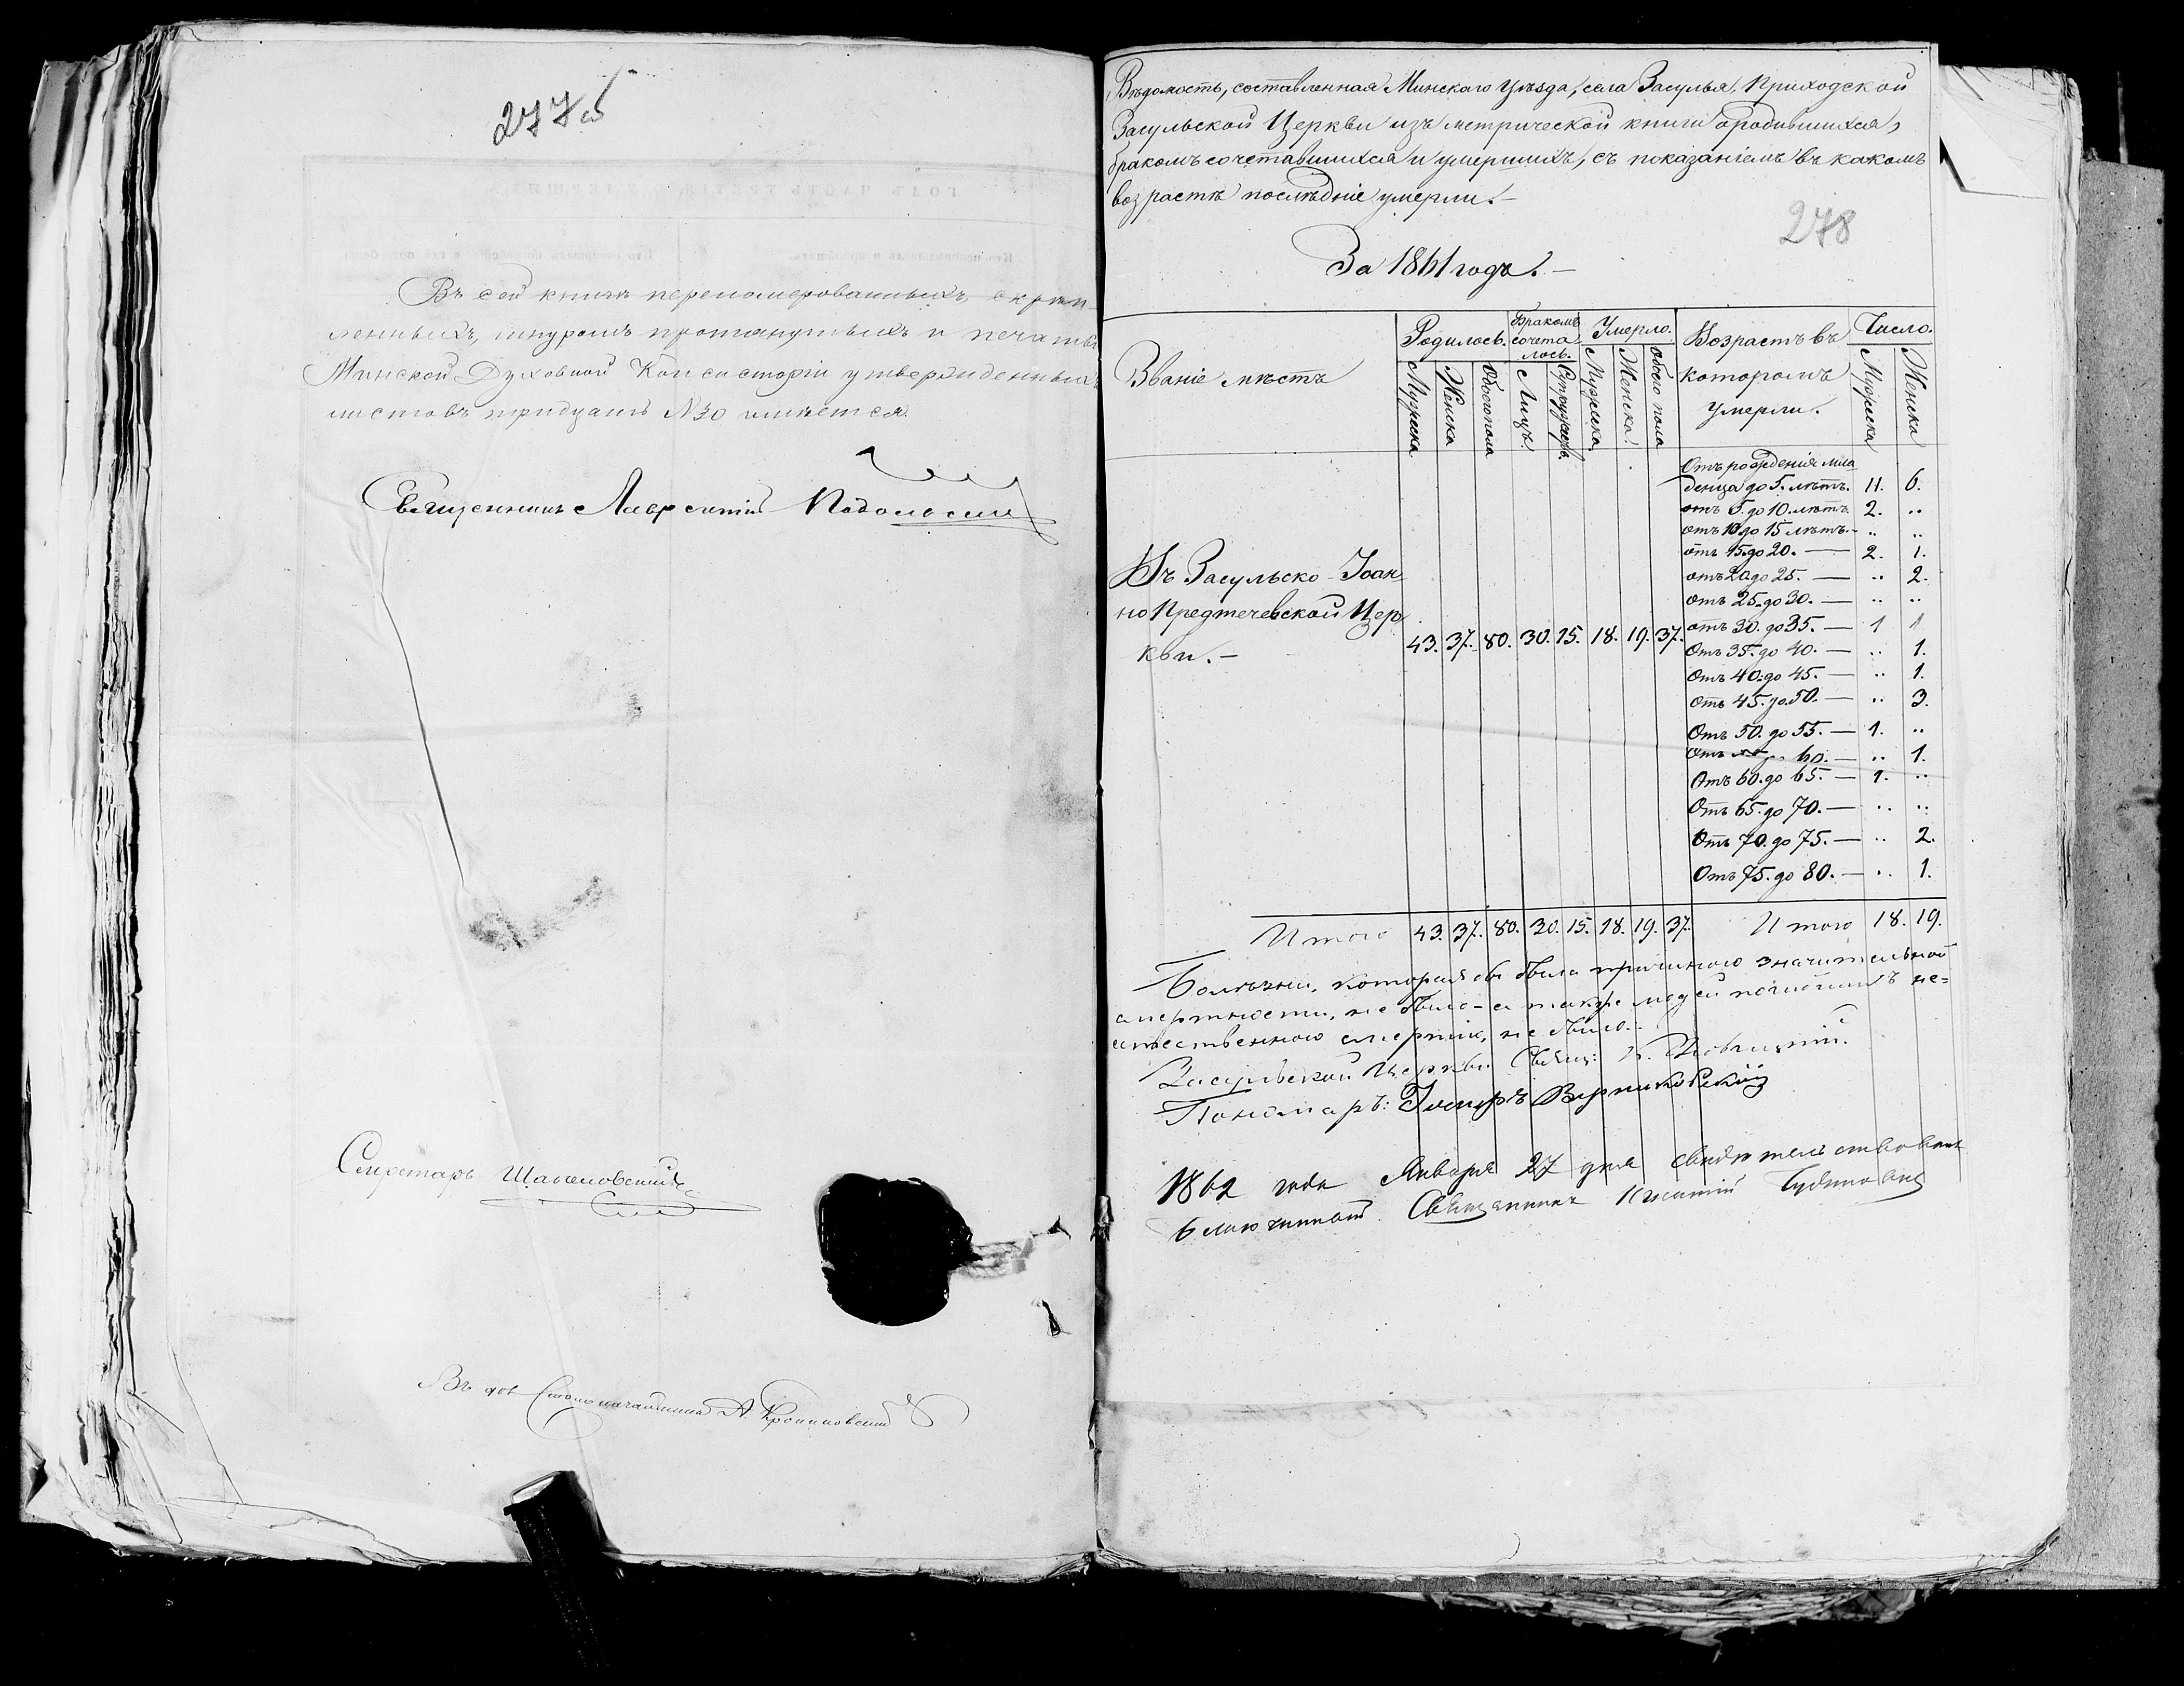 277об
Въ сей книгѣ перенумерованныхъ, скрѣп-
ленныхъ, шнуромъ протянутыхъ и печатью
Минской Духовной Консисторіи утвержденныхъ
листовъ тридцать №30 имѣется.
Священникъ Лаврентій
Секретарь
Въ дол Столоначальника А.
Вѣдомость, составленная Минскаго Уѣзда, села Засулья, Приходской
Засульской Церкви изъ метрической книги о родившихся,
бракомъ сочетавшихся и умершихъ, съ показаніемъ въ какомъ
возрастѣ послѣдніе умерли.-
278
За 1861 годъ.-
Званіе мѣстъ
Родилось. Бракомъ сочета лось. Умерло. Возрастъ въ которомъ умерли. Число.
Мужеска Женска Обоегопола Лицъ. Супружествъ Мужеска Женска. Обоего пола Мужеска Женска
Отъ рожденія мла
денца до 5. лѣтъ. 11. 6.
отъ 5. до 10. лѣтъ. 2. ..
отъ 10. до 15 лѣтъ.- .. ..
отъ 15. до 20. — 2. 1.
отъ 20. до 25. — .. 2.
отъ 25. до 30. — .. ..
отъ 30. до 35. — 1 1
Отъ 35. до 40. — .. 1.
Отъ 40. до 45. — .. 1.
Отъ 45. до 50. — .. 3.
Отъ 50. до 55. — 1. ..
Отъ до 60. — .. 1.
Отъ 60. до 65. — 1. ..
Отъ 65. до 70. — .. ..
Отъ 70. до 75. — .. 2.
Отъ 75. до 80. — .. 1.
Въ Засульско-Іоан
но Предтечевской Цер
кви.- 43. 37. 80. 30. 15. 18. 19. 37.
Итого 43. 37. 80. 30. 15. 18. 19. 37. Итого 18. 19.
Болѣзни, которая бы была причиною значительной
смертности, не было-а также людей погибшихъ не=
естественною смертію, не было.-
Засульской Церкви Свящ:
Пономарь:
1862 года Января 27 дня свидѣтельствовалъ
Благочинный Священникъ